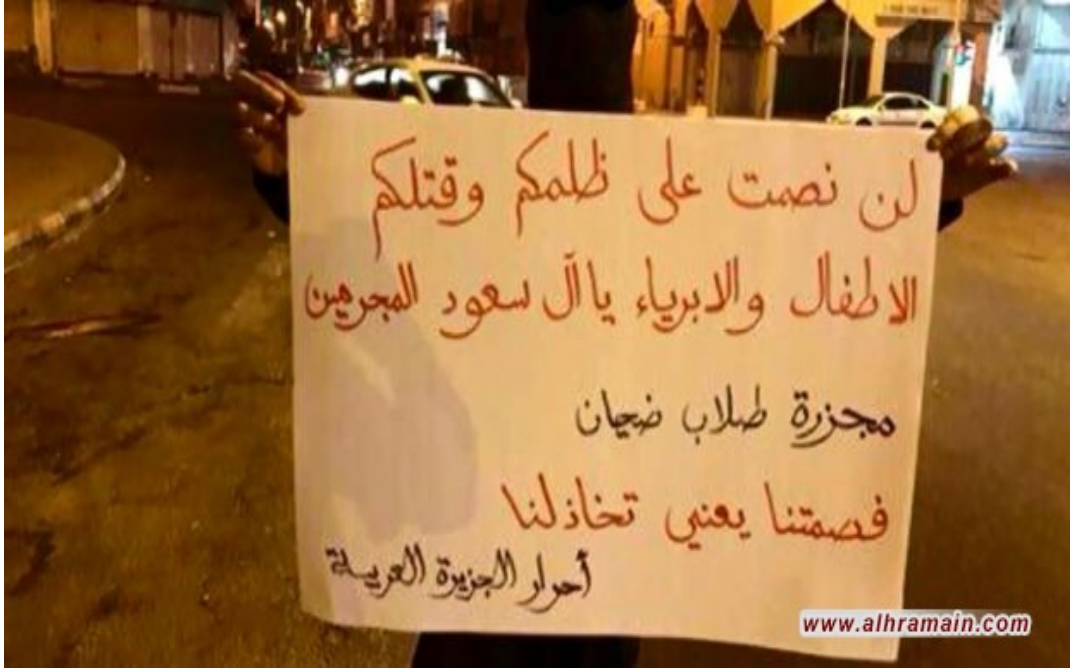 لن نصمت على ظلمكم وقتلكم
الاطفال والابرياء يا آل سعود المجرمين
مجزرة طلاب ضحيان
فصمتنا يعني تخاذلنا
أحرار الجزيرة العربية
www.alhramain.com